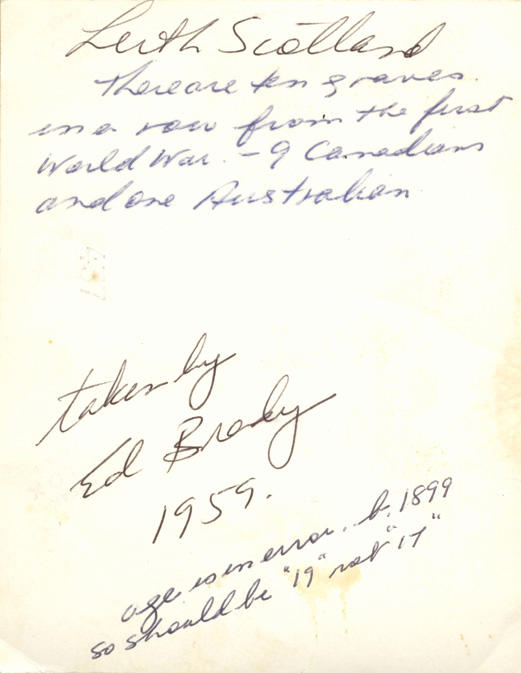 Leith Scotland
there are ten graves
in a row from the first
World War. - 9 Canadians
and one Australian
taken by
Ed Brady
1959.
age is in error. b. 1899
so should be "19" not "17"